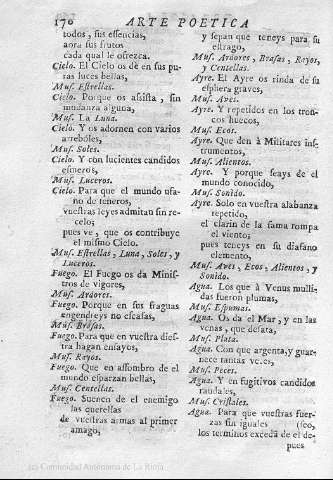 170 ARTE POETICA
todos, sus essencias,
aora sus frutos
cada qual le ofrezca.
Cielo. El Cielo os dè en sus puras luces bellas,
Mus. Estrellas.
Cielo. Porque os assista, sin
mudanza alguna,
Mus. La Luna.
Cielo. Y os adornen con varios
arreboles,
Mus. Soles.
Cielo. Y con lucientes candidos
esmeros,
Mus. Luceros.
Cielo. Para que el mundo ufano de teneros,
vuestras leyes admita sin recelo;
pues ve, que os contribuye
el mismo Cielo.
Mus. Estrellas, Luna, Soles, y
Luceros.
Fuego. El Fuego os da Ministros de vigores,
Mus. Ardores.
Fuego. Porque en sus fraguas
engendreys no escasas,
Mus. Brasas.
Fuego. Para que en vuestra diestra hagan ensayos,
Mus. Rayos.
Fuego. Que en assombro de el
mundo esparzan bellas,
Mus. Centellas.
Fuego. Suenen de el enemigo
las querellas
de vuestras armas al primer
amago,
y sepan que teneys para su
estrago,
Mus. Ardores, Brasas, Rayos,
y Centellas.
Ayre. El Ayre os rinda de su
esphera graves,
Mus. Aves.
Ayre. Y repetidos en los troncos huecos,
Mus. Ecos.
Ayre. Que den à Militares instrumentos,
Mus. Alientos.
Ayre. Y porque seays de el
mundo conocido,
Mus. Sonido.
Ayre. Solo en vuestra alabanza
repetido,
el clarin de la fama rompa
el viento;
pues teneys en su diafano
elemento,
Mus. Aves, Ecos, Alientos, y
Sonido.
Agua. Los que à Venus mullidas fueron plumas,
Mus. Espumas.
Agua. Os da el Mar, y en las
venas, que desata,
Mus. Plata.
Agua. Con que argenta, y guarnece tantas veces,
Mus. Peces.
Agua. Y en fugitivos candidos
raudales,
Mus. Cristales.
Agua. Para que vuestras fuerzas sin iguales (seo,
los terminos exceda de el des-
pues
(c) Comunidad Autónoma de La Rioja